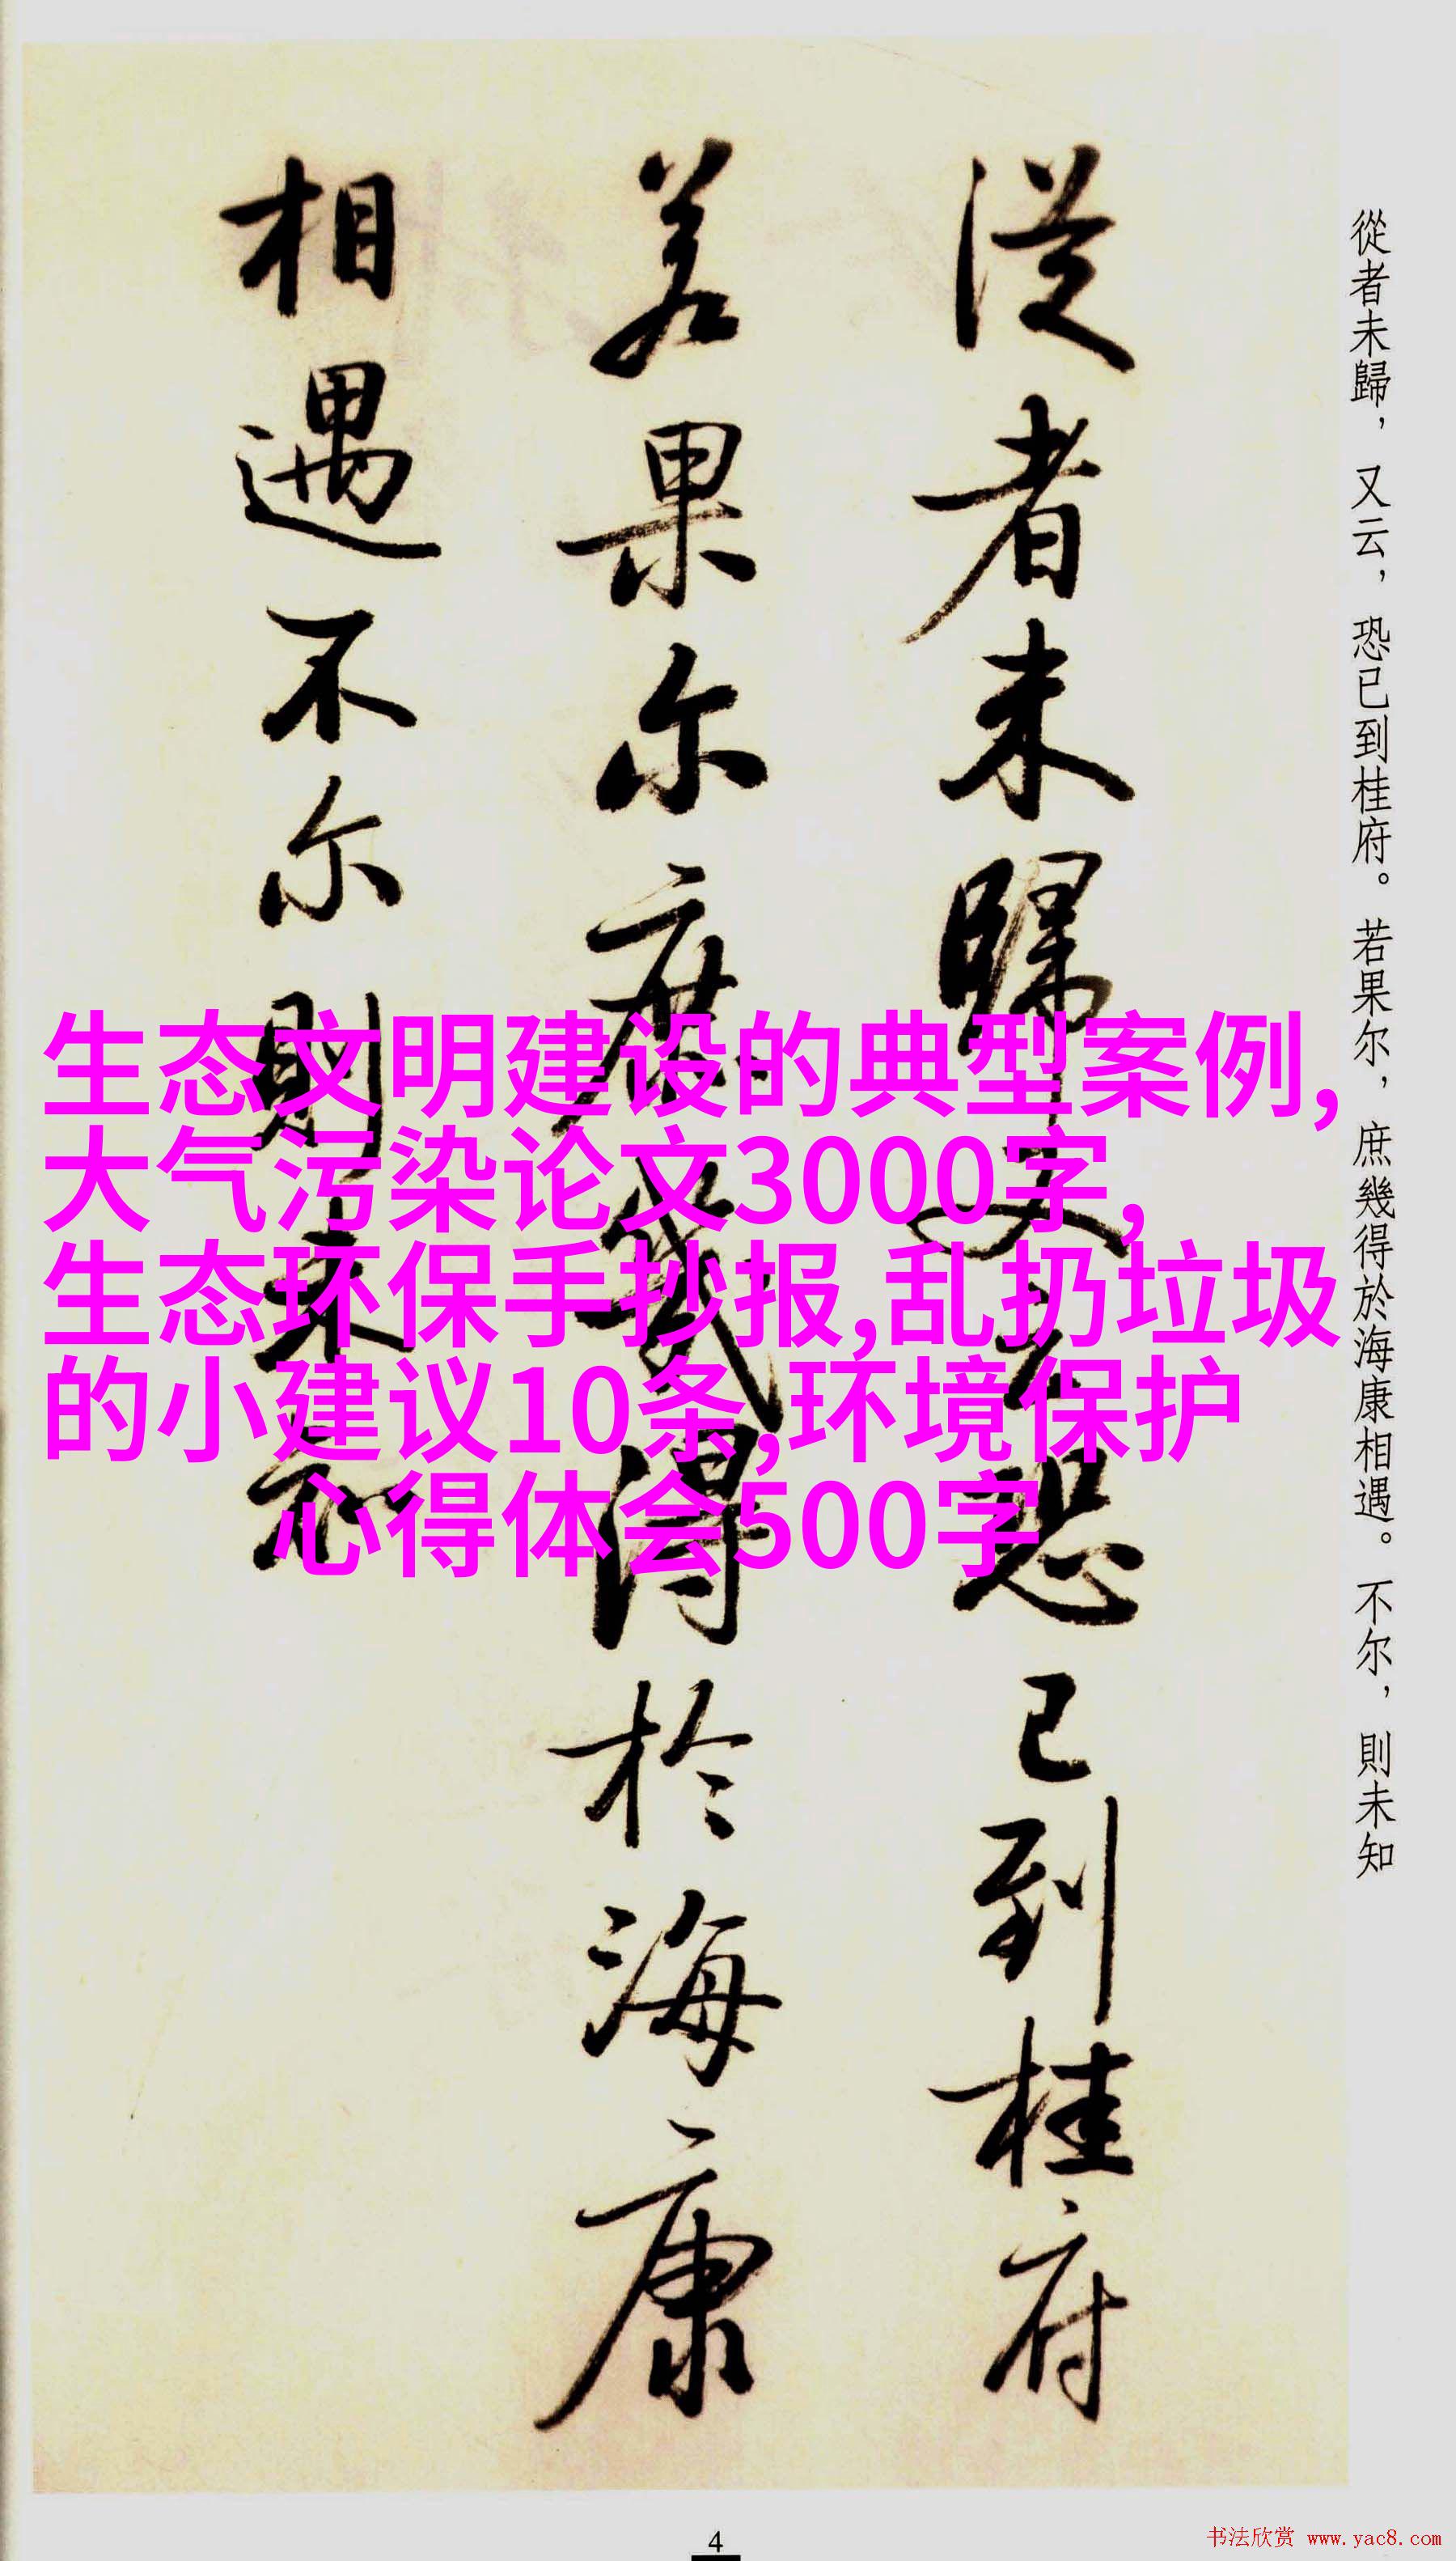 從者未歸，又云，恐已到桂府。若果尔，庶幾得於海康相遇。不尔，則未知
从者未歸又云恐已到桂府
若果尔庶幾得於海康
相遇不尔則未知
生态文明建设的典型案例,
大气污染论文3000字,
生态环保手抄报,乱扔垃圾
的小建议10条,环境保护
心得体会500字
4
书法欣赏 www.yac8.com